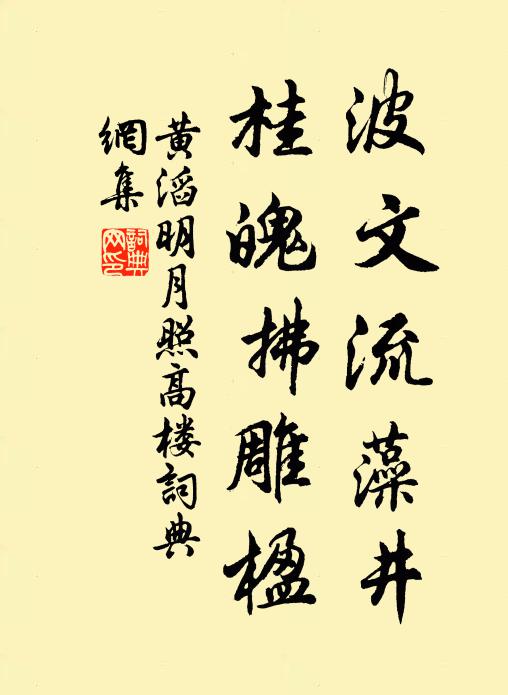 波文流藻井
桂魄拂雕楹
黄滔明月照高楼詞典
網集
詞典
网印